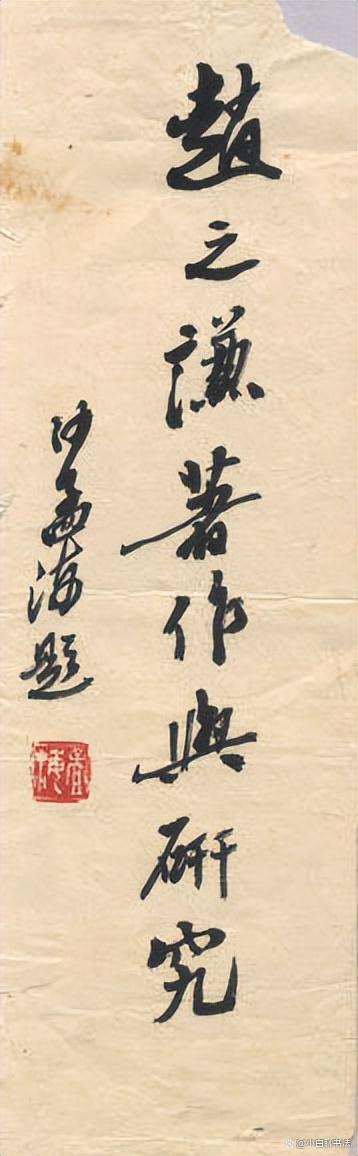 趙之謙著作與研究
沙孟海題
孟海
@小白評书法